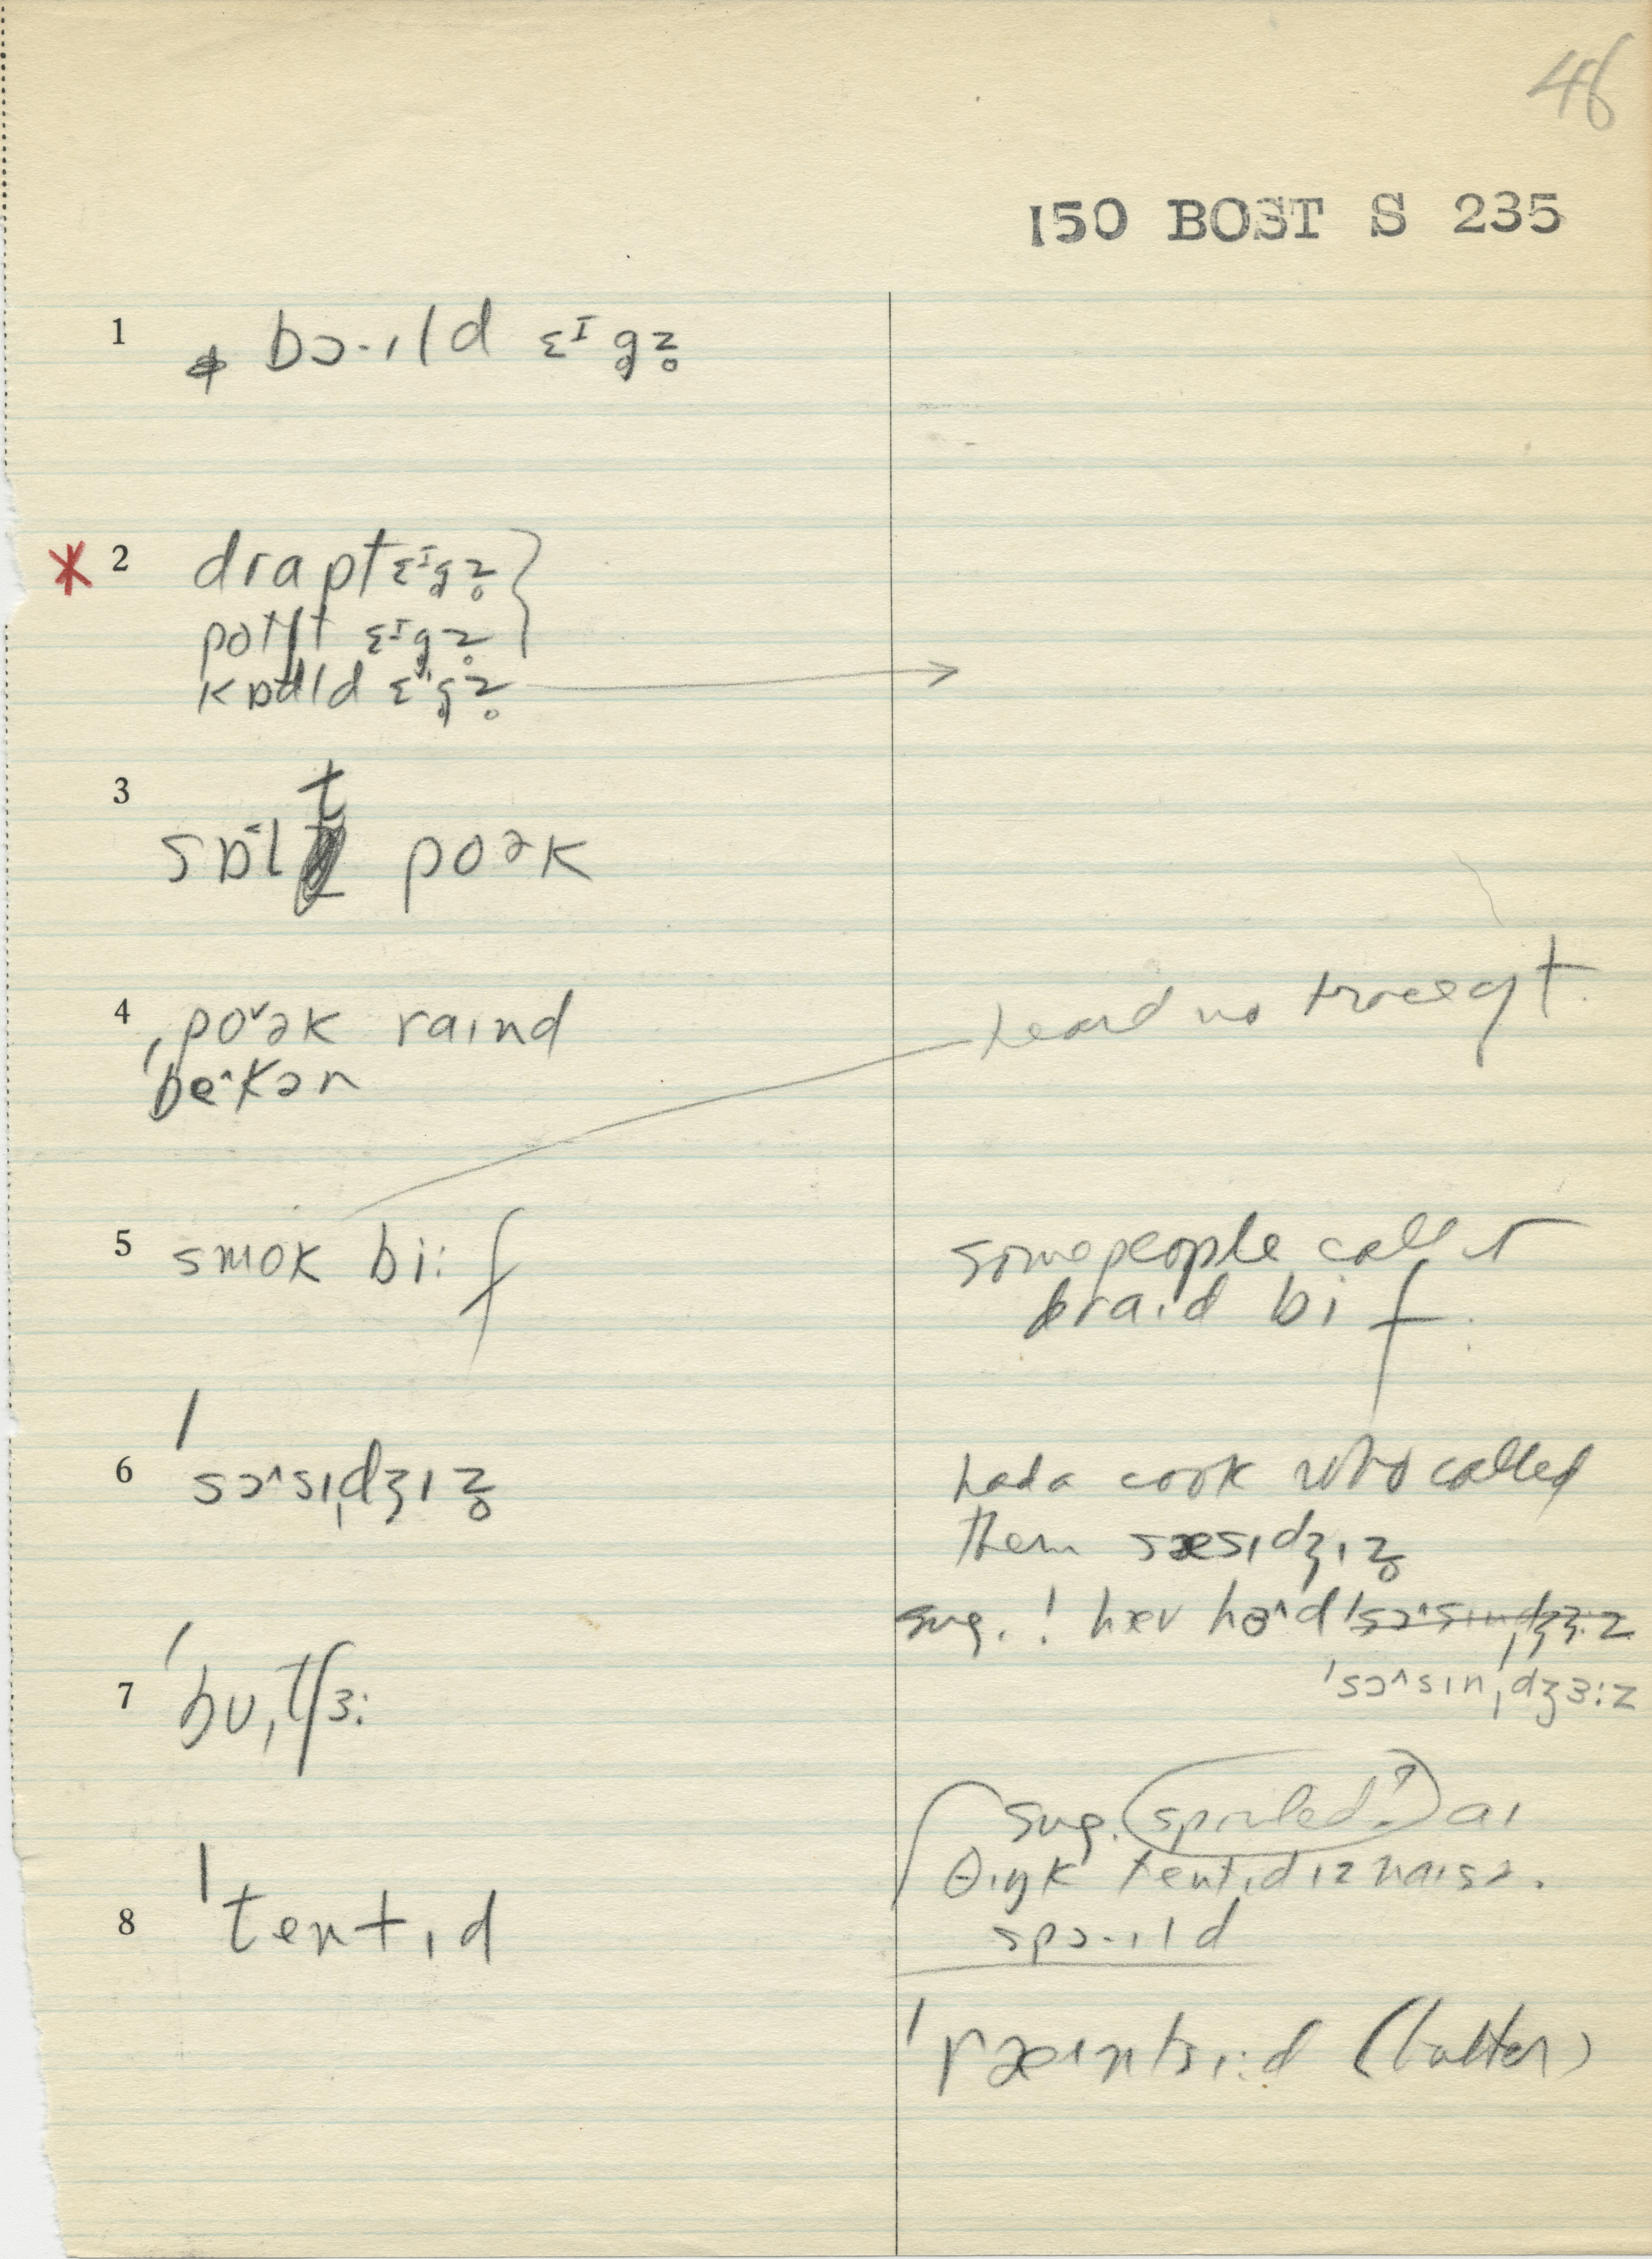 46
150 BOST S 235
1 bɔ·ɪld ɛɪgz̥
2 drapt ɛɪgz̥
potʃt ɛɪgz̥
kɒdld ɛɪgz̥
3 sɒ˂lt poək
4 ˌpo˅ək raɪnd
ˈbe^kən
5 smok bi:f
some people call it
braɪd bi f.
6 ˈsɔ^sɪˌdʒɪz̥
had a cook who called
them sæsɪdʒɪz̥
sug. ! hæv hɜ^d ˈsɔ^sɪnˌdʒɜ:z
ˈsɔ^sɪnˌdʒɜ:z
7 ˈbuˌtʃɜ:
sug. spoiled? aɪ
θɪŋk tentɪd ɪz naɪsə.
spɔ·ɪld
8 ˈtentɪd
(butter)